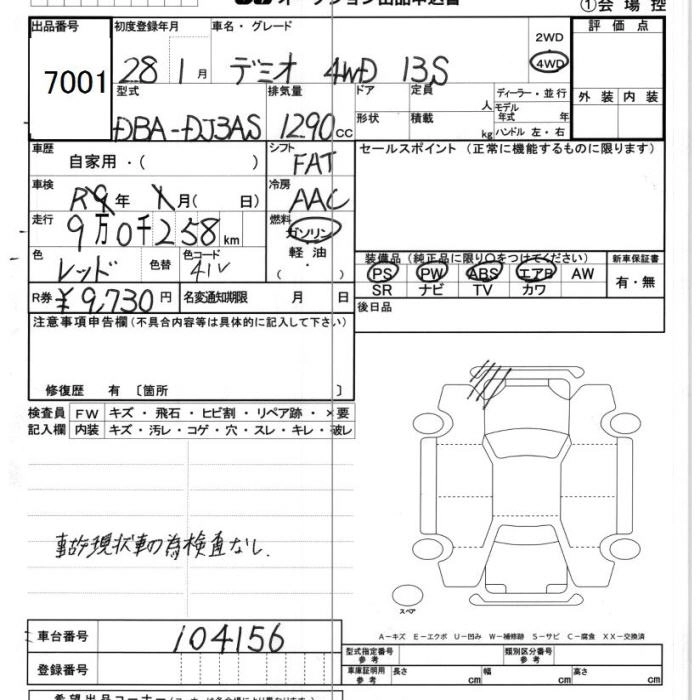 オークション出品申込書 ①会場控
出品番号 7001
初度登録年月 28 1月
車名・グレード デミオ 4WD 13S
2WD
4WD
評価点
外装 内装
型式 DBA-DJ3AS
排気量 1290cc
ドア
形状
定員 人
積載 kg
ディーラー・並行
モデル年式 年
ハンドル 左・右
車歴 自家用・( )
シフト FAT
セールスポイント (正常に機能するものに限ります)
車検 R9年 月( 日)
冷房 AAC
走行 9万0千258km
燃料 ガソリン
軽油
( ・ )
色 レッド 色替 色コード 41V
装備品 (純正品に限り○をつけてください)
PS PW ABS エアB AW
SR ナビ TV カワ
新車保証書
有・無
R券 ¥9,730円 名変通知期限 月 日
後日品
注意事項申告欄(不具合内容等は具体的に記入して下さい)
修復歴 有 〔箇所 〕
検査員 FW キズ・飛石・ヒビ割・リペア跡・×要
記入欄 内装 キズ・汚レ・コゲ・穴・スレ・キレ・破レ
事故現状車の為検査なし.
スペア
A-キズ E-エクボ U-凹み W-補修跡 S-サビ C-腐食 XX-交換済
車台番号 104156
登録番号
型式指定番号
参考
類別区分番号
参考
車庫証明用
参考
長さ cm 幅 cm 高さ cm